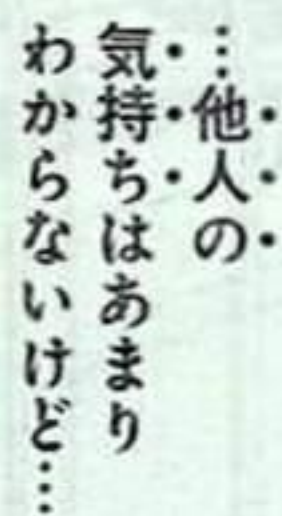 …他人の
気持ちはあまり
わからないけど…